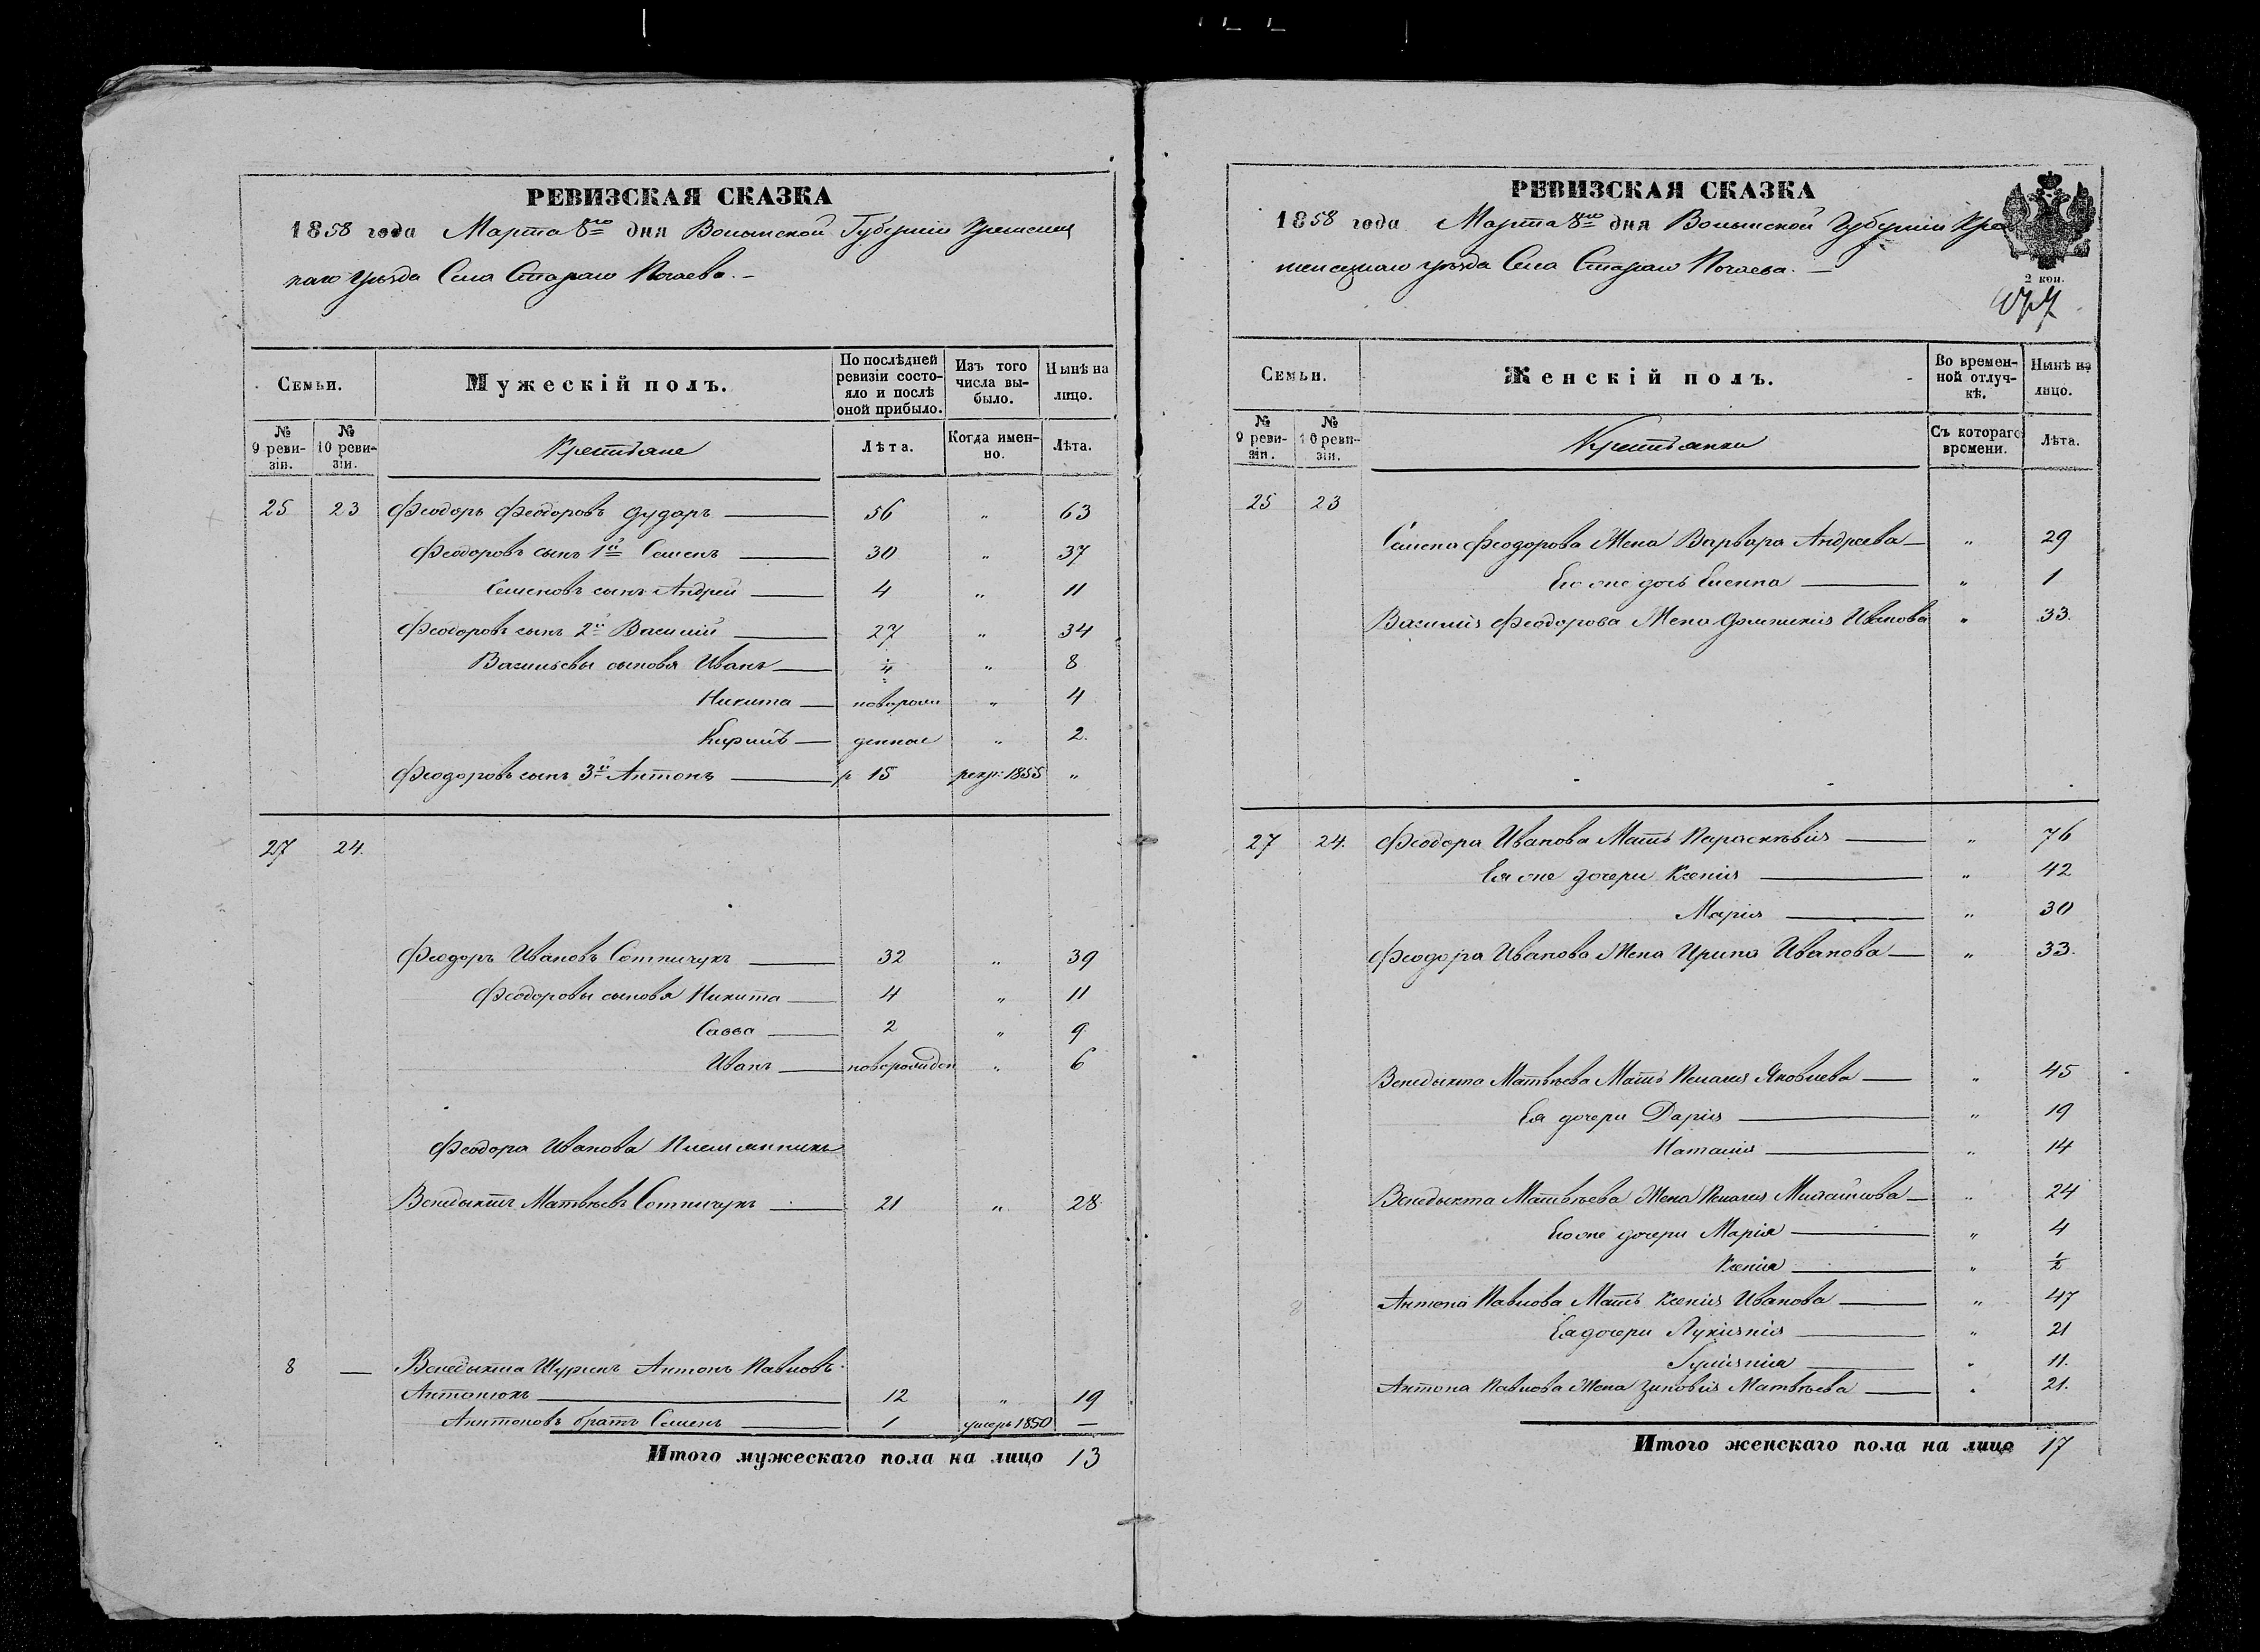 РЕВИЗСКАЯ СКАЗКА
1858 года Марта 8го дня Волынской Губерніи Кременец
каго Уѣзда Села Стараго Почаева. —
Семьи.
Мужескій полъ.
По послѣдней ревизіи состояло и послѣ оной прибыло.
Изъ того числа выбыло.
Ныне на лицо.
№ 9 ревизіи.
№ 10 ревизіи.
Крестьяне
Лѣта.
Когда именно.
Лѣта.
25 23 Феодоръ Феодоровъ Дударъ — 56 " 63
Феодоровъ сынъ 1й Семенъ — 30 " 37
Семеновъ сынъ Андрей — 4 " 11
Феодоровъ сынъ 2й Василій — 27 " 34
Васильевы сыновья Иванъ — 1/4 " 8
Никита — новорож " 4
Кирилъ — денные " 2.
Феодоровъ сынъ 3й Антонъ — р 15 рекр: 1855 "
27 24.
Феодоръ Ивановъ Сотничукъ — 32 " 39
Феодоровы сыновья Никита — 4 " 11
Савва — 2 " 9
Иванъ — новорожден " 6
Феодора Иванова Племянникъ
Венедыктъ Матвѣевъ Сотничукъ — 21 " 28
8 — Венедыкта Шуринъ Антонъ Павловъ
Антонюкъ — 12 " 19
Антоновъ братъ Семенъ — 1 умеръ 1850 —
Итого мужескаго пола на лицо 13
РЕВИЗСКАЯ СКАЗКА
1858 года Марта 8го дня Волынской Губерніи Кре
менецкаго уѣзда Села Стараго Почаева. —
2 коп.
Семьи.
Женскій полъ.
Во временной отлучкѣ.
Ныне на лицо.
№ 9 ревизіи.
№ 10 ревизіи.
Крестьянки
Съ котораго времени.
Лѣта.
25 23
Семена Феодорова Жена Варвара Андреева — " 29
Его же дочь Еленна — " 1
Василія Феодорова Жена Домникія Иванова " 33.
27 24. Феодора Иванова Мать Параскѣвія — " 76
Ея же дочери Ксенія — " 42
Марія — " 30
Феодора Иванова Жена Ирина Иванова — " 33.
Венедыкта Матвѣева Мать Пелагия Яковлева — " 45
Ея дочери Дарія — " 19
Наталія — " 14
Венедыкта Матвѣева Жена Пелагия Михайлова — " 24
Его же дочери Марія — " 4
Ксенія — " 1/2
Антона Павлова Мать Ксенія Иванова — " 47
Ея дочери Лукіянія — " 21
Іуліянія — " 11.
Антона Павлова Жена Зиновія Матвѣева — " 21.
Итого женскаго пола на лицо 17